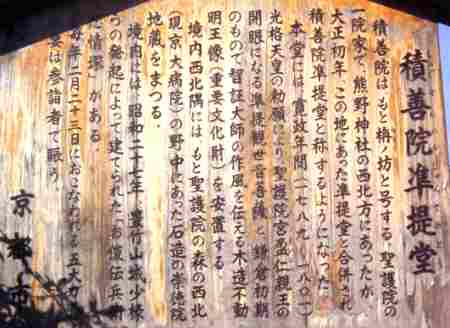 積善院凖提堂
積善院はもと梅ノ坊と号する聖護院の
一院家で、熊野神社の西北方にあったが
大正初年、この地にあった凖提堂と合併され
積善院凖提堂と称するようになった。
本堂には、寛政年間(一七八九〜一八〇一)
光格天皇の勅願により聖護院宮盈仁親王の
開眼になる凖提観世音菩薩と鎌倉初期
のもので智証大師の作風を伝える木造不動
明王像(重要文化財)を安置する。
境内西北隅には、もと聖護院の森の西北
(現京大病院)の野中にあった石造の崇徳院
地蔵をまつる。
境内には、昭和二十七年、豊竹山城少掾
らの発起によって建てられた「お俊伝兵衛
恋情塚」がある。
毎年二月二十三日におこなわれる五大力
は参詣者で賑う。
京都市